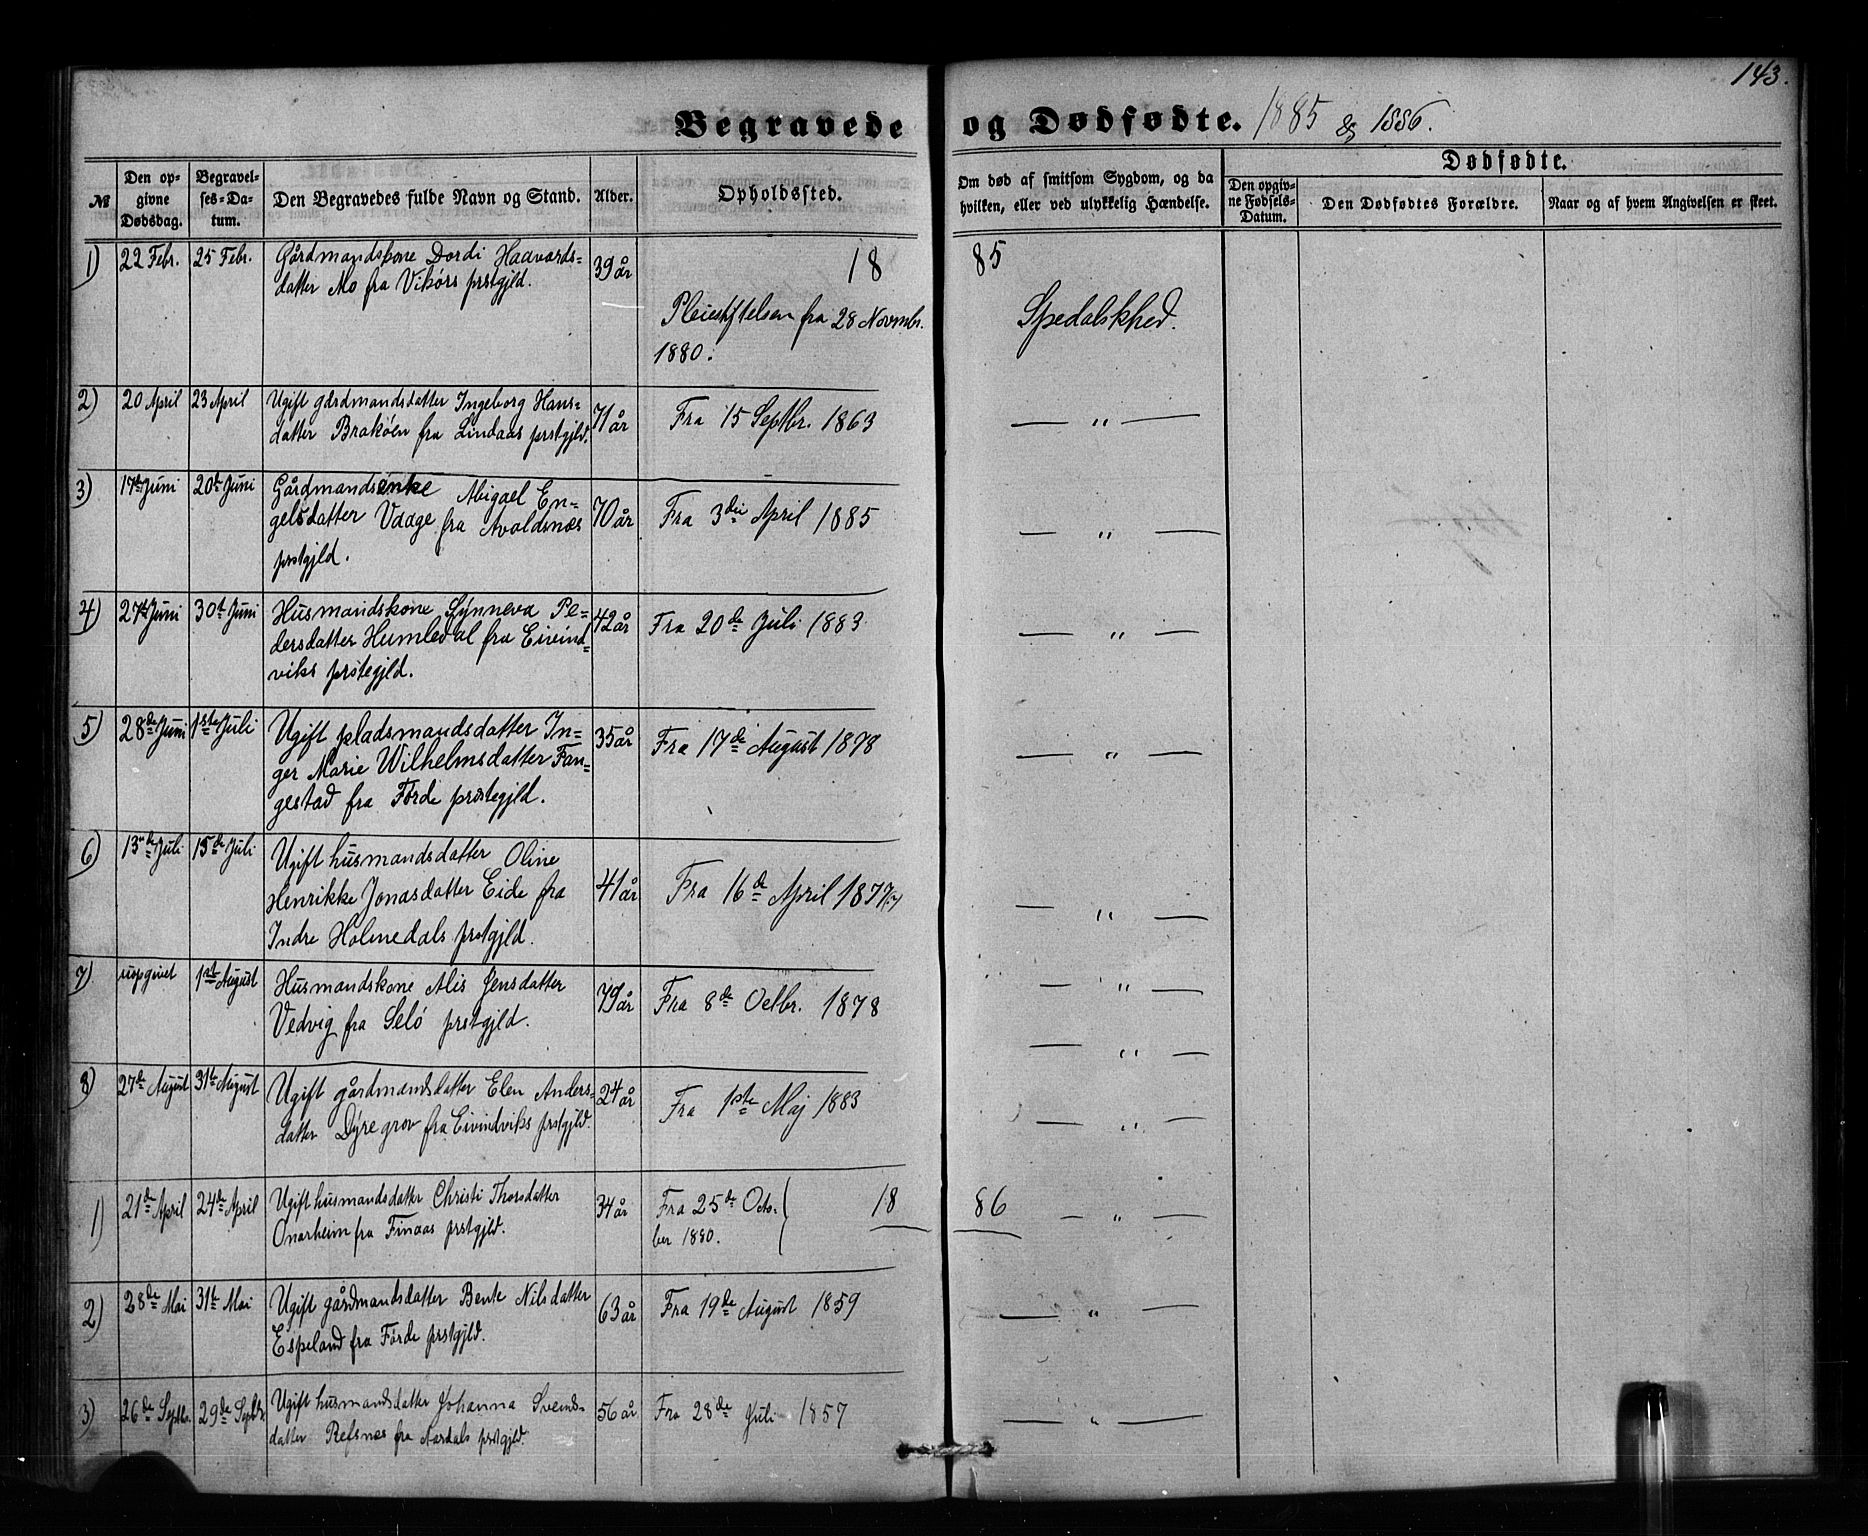 143.
Begravede og Dødfødte. 1885 & 1886.
№
Den opgivne Dødsdag.
Begravelses-Datum.
Den Begravedes fulde Navn og Stand.
Alder.
Opholdssted.
Om død af smitsom Sygdom, og da hvilken, eller ved ulykkelig Hændelse.
Dødfødte.
Den opgivne Fødsels-Datum.
Den Dødfødtes Forældre.
Naar og af hvem Angivelsen er skeet.
18 85
1) 22 Febr. 25 Febr. Gårdmandskone Dordi Haavards- 39 år
datter Mo fra Vikørs prstgjld.
Pleiestiftelsen fra 28 Novmbr. Spedalskhed.
1880.
2) 20 April 23 April Ugift gårdmandsdatter Ingeborg Hans- 71 år Fra 15 Septbr. 1863 — " —
datter Brakøen fra Lindaas prstgjld.
3) 17de Juni 20de Juni Gårdmandsenke Abigael En- 70 år Fra 3die April 1885 — " —
gelsdatter Vaage fra Avaldsnæs
prstgjld.
4) 27de Juni 30te Juni Husmandskone Synneva Pe- 42 år Fra 20de Juli 1883 — " —
dersdatter Humledal fra Eivind-
viks prstegjld.
5) 28de Juni 1ste Juli Ugift pladsmandsdatter In- 35 år Fra 17de August 1878 — " —
ger Marie Wilhelmsdatter Fan-
gestad fra Førde prstegjld.
6) 13de Juli 15de Juli Ugift husmandsdatter Oline 41 år Fra 16de April 1877 — " —
Henrikke Jonasdatter Eide fra
Indre Holmedals prstgjld.
7) uopgivet 1ste August Husmandskone Alis Jensdatter 79 år Fra 8de Octbr. 1878 — " —
Vedvig fra Selø prstgjld.
— " —
8) 27de August 31te August Ugift gårdmandsdatter Elen Anders- 24 år Fra 1ste Maj 1883 — " —
datter Dyregrov fra Eivindviks prstgjld.
1) 21de April 24de April Ugift husmandsdatter Christi Thorsdatter 34 år Fra 25de Octo- 18 86 — " —
Onarheim fra Finaas prstgjld. ber 1880.
2) 28de Mai 31te Mai Ugift gårdmandsdatter Bente Nilsdatter 63 år Fra 19de August 1859 — " —
Espeland fra Førde prstgjld.
3) 26de Septbr. 29de Septbr Ugift husmandsdatter Johanna Svends- 56 år Fra 28de Juli 1857 — " —
datter Refsnæs fra Aardals prstgjld.